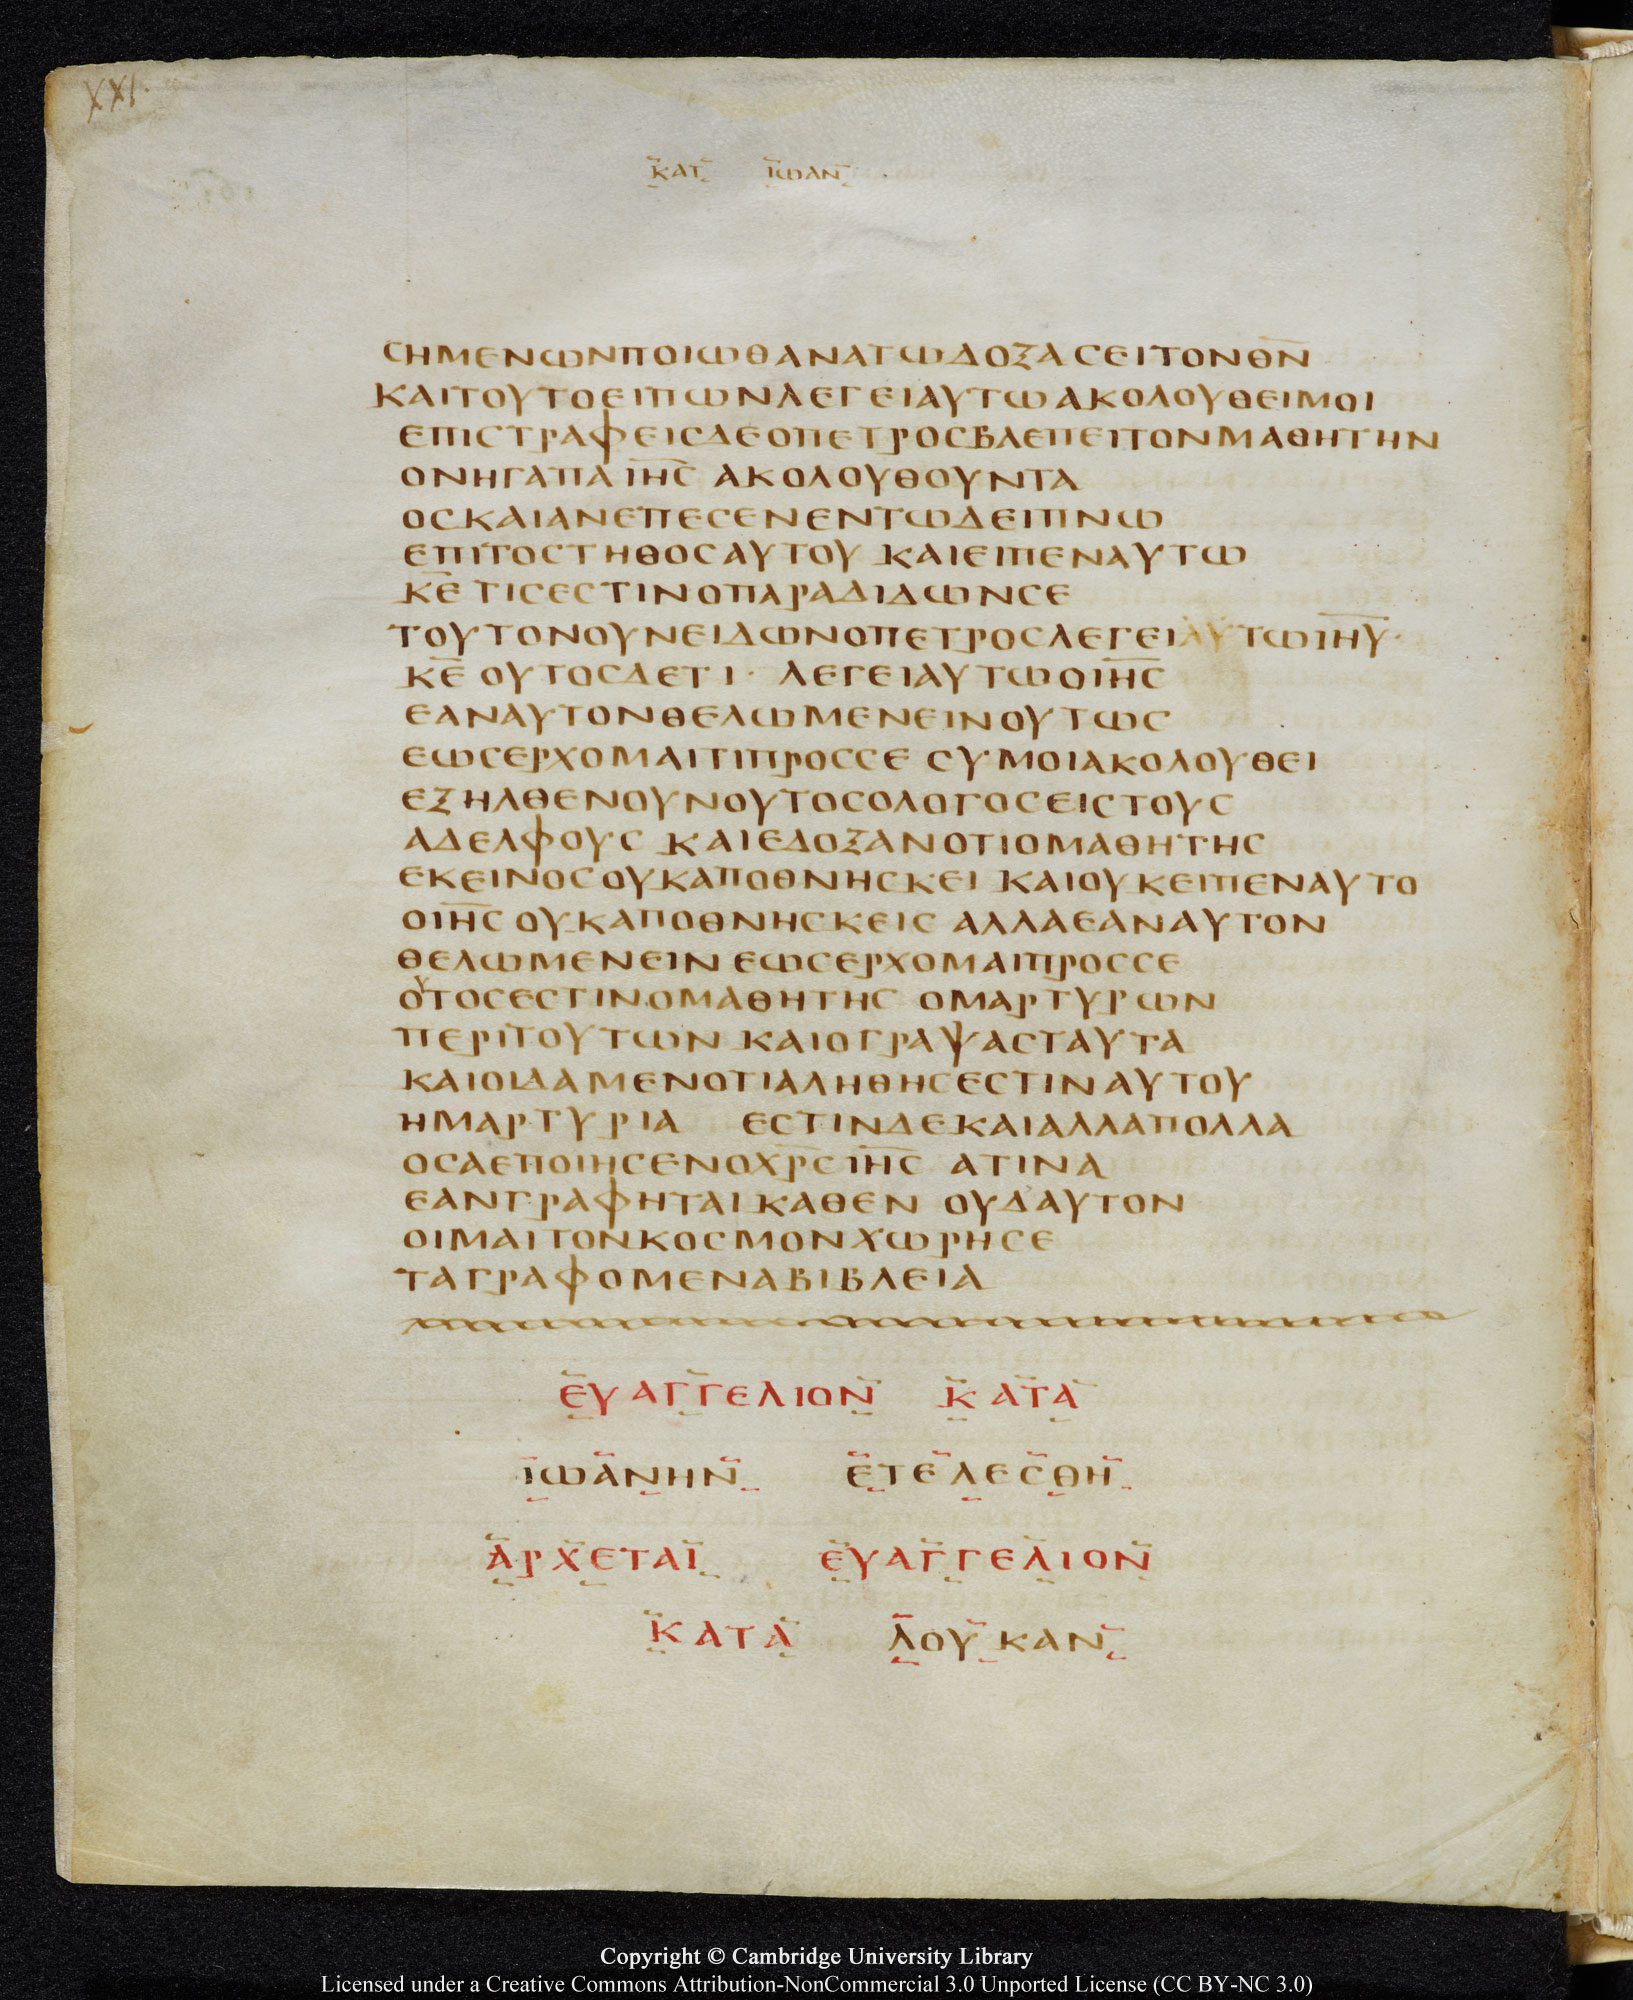 XXI.
ΚΑΤ ΙΩΑΝ
ϹΗΜΕΝΩΝΠΟΙΩΘΑΝΑΤΩΔΟΞΑϹΕΙΤΟΝΘ̅Ν̅
ΚΑΙΤΟΥΤΟΕΙΠΩΝΛΕΓΕΙΑΥΤΩΑΚΟΛΟΥΘΕΙΜΟΙ
ΕΠΙϹΤΡΑΦΕΙϹΔΕΟΠΕΤΡΟϹΒΛΕΠΕΙΤΟΝΜΑΘΗΤΗΝ
ΟΝΗΓΑΠΑ Ι̅Η̅Ϲ̅ ΑΚΟΛΟΥΘΟΥΝΤΑ
ΟϹΚΑΙΑΝΕΠΕϹΕΝΕΝΤΩΔΕΙΠΝΩ
ΕΠΙΤΟϹΤΗΘΟϹΑΥΤΟΥ ΚΑΙΕΙΠΕΝΑΥΤΩ
Κ̅Ε̅ ΤΙϹΕϹΤΙΝΟΠΑΡΑΔΙΔΩΝϹΕ
ΤΟΥΤΟΝΟΥΝΕΙΔΩΝΟΠΕΤΡΟϹΛΕΓΕΙΑΥΤΩΙ̅Η̅Υ̅·
Κ̅Ε̅ ΟΥΤΟϹΔΕΤΙ· ΛΕΓΕΙΑΥΤΩΟΙ̅Η̅Ϲ̅
ΕΑΝΑΥΤΟΝΘΕΛΩΜΕΝΕΙΝΟΥΤΩϹ
ΕΩϹΕΡΧΟΜΑΙΤΙΠΡΟϹϹΕ ϹΥΜΟΙΑΚΟΛΟΥΘΕΙ
ΕΞΗΛΘΕΝΟΥΝΟΥΤΟϹΟΛΟΓΟϹΕΙϹΤΟΥϹ
ΑΔΕΛΦΟΥϹ ΚΑΙΕΔΟΞΑΝΟΤΙΟΜΑΘΗΤΗϹ
ΕΚΕΙΝΟϹΟΥΚΑΠΟΘΝΗϹΚΕΙ ΚΑΙΟΥΚΕΙΠΕΝΑΥΤΟ
ΟΙ̅Η̅Ϲ̅ ΟΥΚΑΠΟΘΝΗϹΚΕΙϹ ΑΛΛΑΕΑΝΑΥΤΟΝ
ΘΕΛΩΜΕΝΕΙΝ ΕΩϹΕΡΧΟΜΑΙΠΡΟϹϹΕ
ΟΥΤΟϹΕϹΤΙΝΟΜΑΘΗΤΗϹ ΟΜΑΡΤΥΡΩΝ
ΠΕΡΙΤΟΥΤΩΝ ΚΑΙΟΓΡΑΨΑϹΤΑΥΤΑ
ΚΑΙΟΙΔΑΜΕΝΟΤΙΑΛΗΘΗϹΕϹΤΙΝΑΥΤΟΥ
ΗΜΑΡΤΥΡΙΑ ΕϹΤΙΝΔΕΚΑΙΑΛΛΑΠΟΛΛΑ
ΟϹΑΕΠΟΙΗϹΕΝΟΧ̅Ρ̅Ϲ̅ Ι̅Η̅Ϲ̅ ΑΤΙΝΑ
ΕΑΝΓΡΑΦΗΤΑΙΚΑΘΕΝ ΟΥΔΑΥΤΟΝ
ΟΙΜΑΙΤΟΝΚΟϹΜΟΝΧΩΡΗϹΕ
ΤΑΓΡΑΦΟΜΕΝΑΒΙΒΛΕΙΑ
ΕΥΑΓΓΕΛΙΟΝ ΚΑΤΑ
ΙΩΑΝΗΝ ΕΤΕΛΕϹΘΗ
ΑΡΧΕΤΑΙ ΕΥΑΓΓΕΛΙΟΝ
ΚΑΤΑ ΛΟΥΚΑΝ
Copyright © Cambridge University Library
Licensed under a Creative Commons Attribution-NonCommercial 3.0 Unported License (CC BY-NC 3.0)